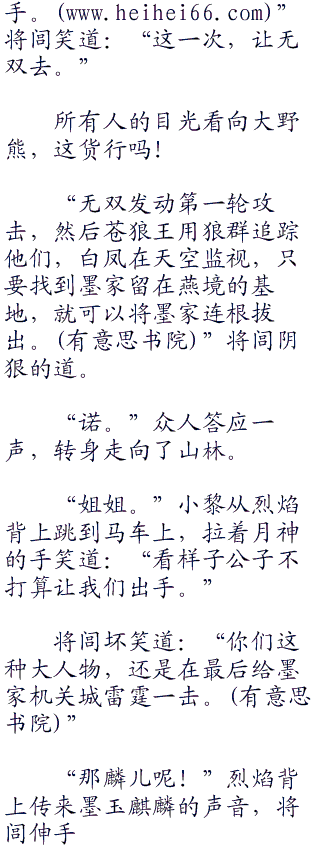 手。(www.heihei66.com)”
将闾笑道：“这一次，让无
双去。”
所有人的目光看向大野
熊，这货行吗！
“无双发动第一轮攻
击，然后苍狼王用狼群追踪
他们，白凤在天空监视，只
要找到墨家留在燕境的基
地，就可以将墨家连根拔
出。(有意思书院)”将闾阴
狠的道。
“诺。”众人答应一
声，转身走向了山林。
“姐姐。”小黎从烈焰
背上跳到马车上，拉着月神
的手笑道：“看样子公子不
打算让我们出手。”
将闾坏笑道：“你们这
种大人物，还是在最后给墨
家机关城雷霆一击。(有意思
书院)”
“那麟儿呢！”烈焰背
上传来墨玉麒麟的声音，将
闾伸手